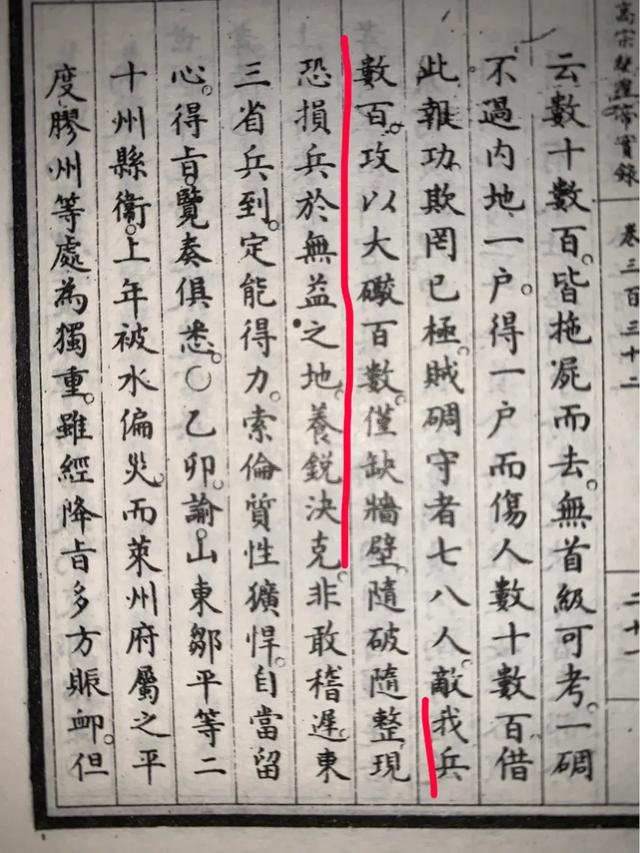 高宗純皇帝實錄 卷三百三十二 二十一
云數十數百。皆拖屍而去。無首級可考。一碉
不過內地一户。得一户而傷人數十數百。借
此報功。欺罔已極。賊碉守者七八人。敵我兵
數百。攻以大礮百數。僅缺牆壁。隨破隨整。現
恐損兵於無益之地。養銳決克。非敢稽遲。東
三省兵到。定能得力。索倫質性獷悍。自當留
心。得旨。覽奏俱悉。○乙卯。諭。山東鄒平等二
十州縣衞。上年被水偏災。而萊州府屬之平
度膠州等處為獨重。雖經降旨多方賑卹。但